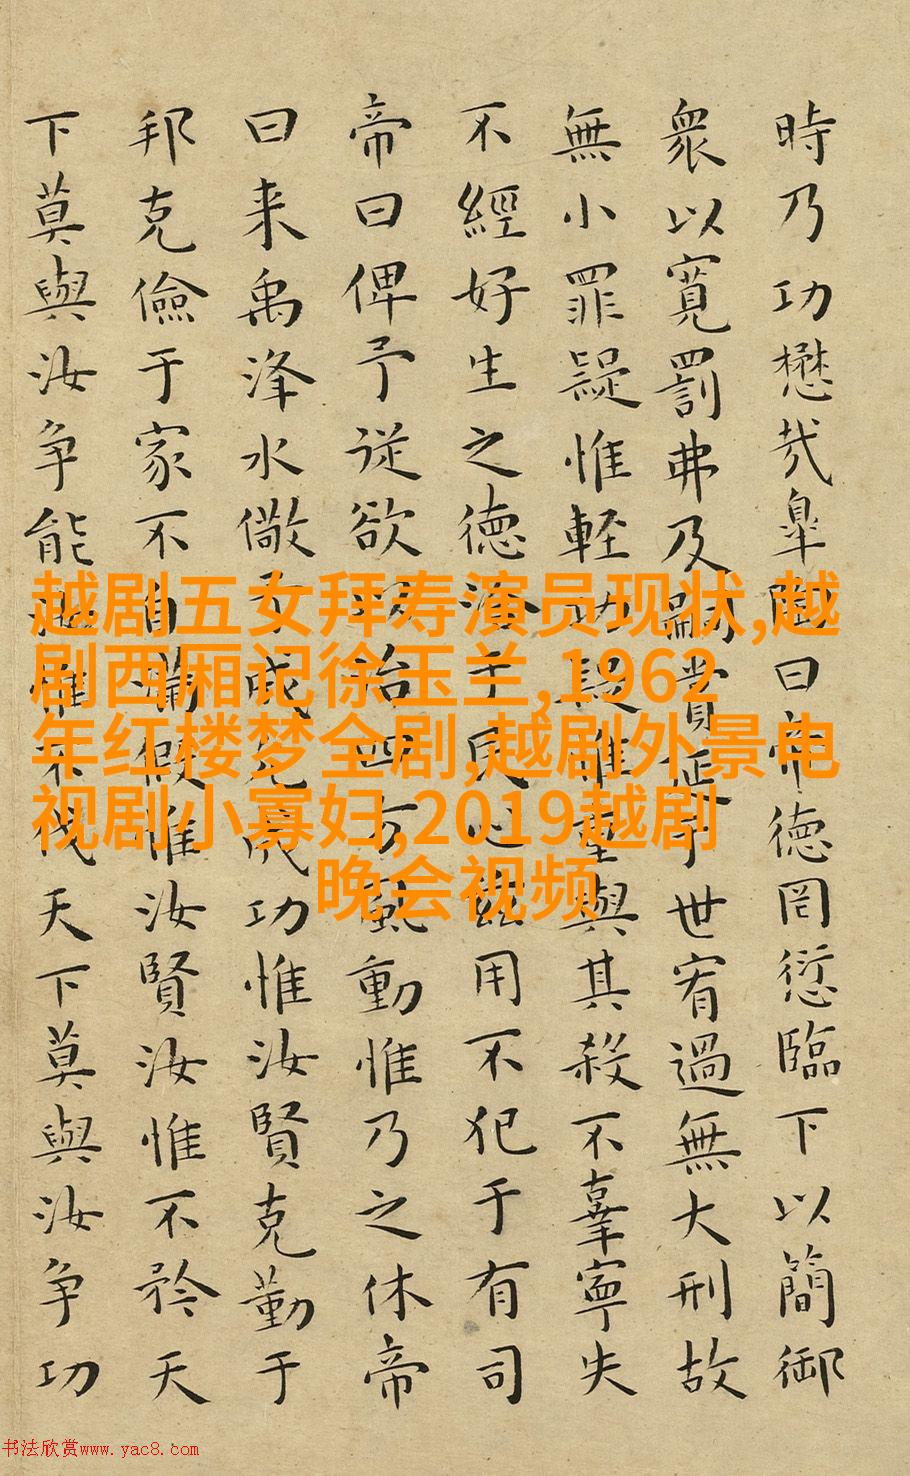 時乃功懋哉皐陶曰帝德罔愆臨下以簡御
衆以寬罰弗及嗣賞延于世宥過無大刑故
無小罪疑惟輕功疑惟重與其殺不辜寧失
不經好生之德洽于民心茲用不犯于有司
帝曰俾予従欲以治四方風動惟乃之休帝
曰来禹洚水儆予成允成功惟汝賢克勤于
邦克儉于家不自滿假惟汝賢汝惟不矜天
下莫與汝争能惟不伐天下莫與汝争功
越剧五女拜寿演员现状,越
剧西厢记徐玉兰,1962
年红楼梦全剧,越剧外景电
视剧小寡妇,2019越剧
晚会视频
书法欣赏www.yac8.com